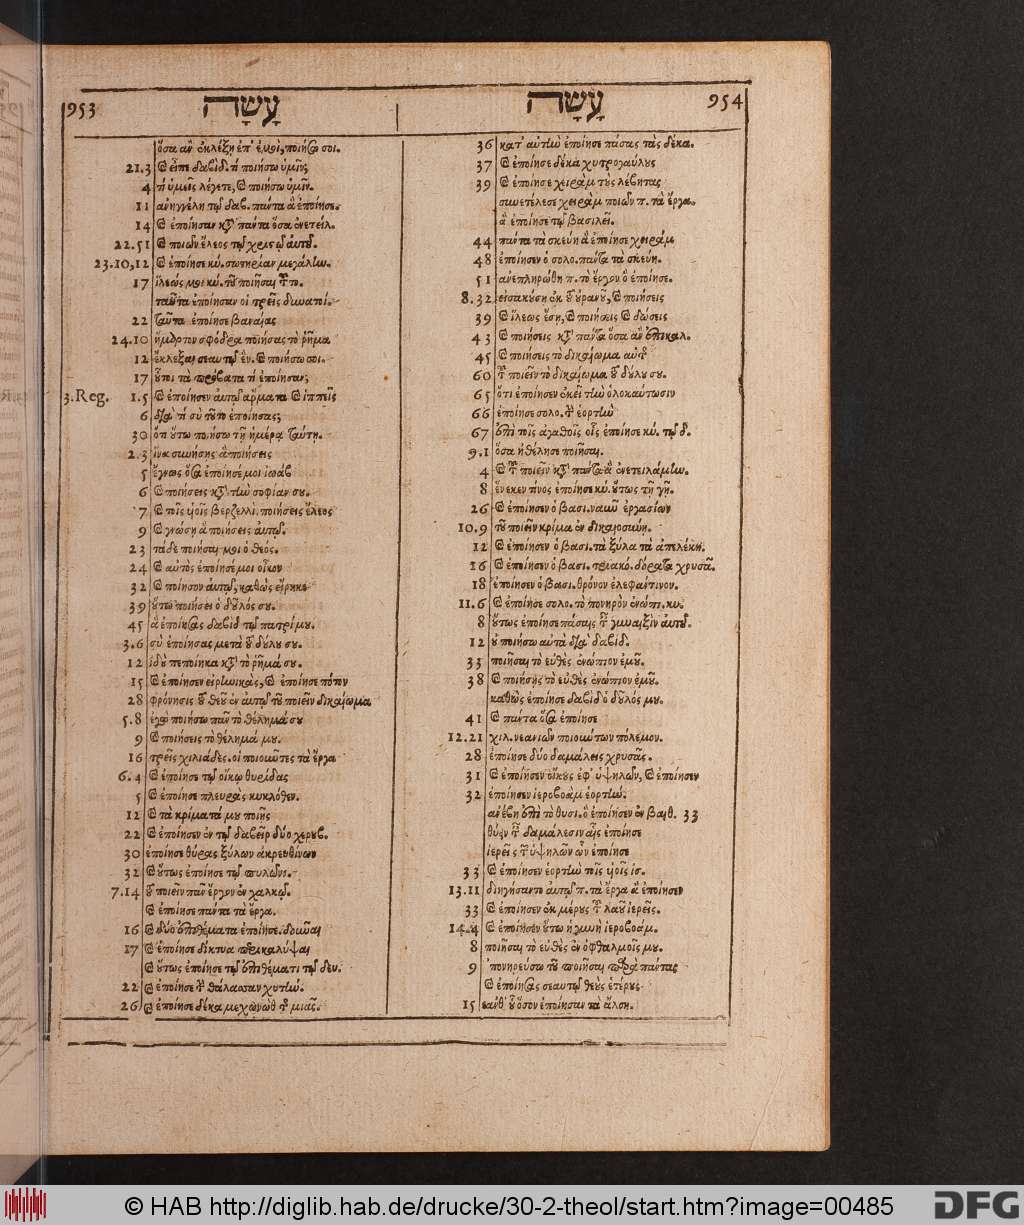 953 עָשָׂה
ὅσα ἂν ἐκλέξῃ ἐπ' ἐμοὶ, ποιήσω σοι.
21.3 καὶ εἶπε δαβὶδ. τί ποιήσω ὑμῖν;
4 τί ὑμεῖς λέγετε, καὶ ποιήσω ὑμῖν.
11 ἀνηγγέλη τῷ δαβ. πάντα ἃ ἐποίησε.
14 καὶ ἐποίησαν κατὰ πάντα ὅσα ἐνετείλ.
22.51 καὶ ποιῶν ἔλεος τῷ χριστῷ αὐτοῦ.
23.10,12 καὶ ἐποίησε κύ. σωτηρίαν μεγάλην.
17 ἵλεώς μοι κύ. τοῦ ποιῆσαι τοῦτο.
ταῦτα ἐποίησαν οἱ τρεῖς δυνατοί.
22 ταῦτα ἐποίησε βαναίας
24.10 ἥμαρτον σφόδρα ποιήσας τὸ ῥῆμα
12 ἔκλεξαι σεαυτῷ ἓν. καὶ ποιήσω σοι.
17 οὗτοι τὰ πρόβατα τί ἐποίησαν;
3.Reg. 1.5 καὶ ἐποίησεν αὐτῷ ἅρματα καὶ ἱππεῖς
6 διὰ τί σὺ τοῦτο ἐποίησας;
30 ὅτι οὕτω ποιήσω τῇ ἡμέρᾳ ταύτῃ.
2.3 ἵνα συνήσῃς ἃ ποιήσεις
5 ἔγνως ὅσα ἐποίησέ μοι ἰωάβ
6 καὶ ποιήσεις κατὰ τὴν σοφίαν σου.
7 καὶ τοῖς υἱοῖς βερζελλὶ. ποιήσεις ἔλεος
9 καὶ γνώσῃ ἃ ποιήσεις αὐτῷ.
23 τάδε ποιήσαι μοι ὁ θεός.
24 καὶ αὐτὸς ἐποίησέ μοι οἶκον
32 καὶ ποίησον αὐτῷ, καθὼς εἴρηκε
39 οὕτω ποιήσει ὁ δοῦλός σου.
45 ἃ ἐποίησας δαβὶδ τῷ πατρί μου.
3.6 σὺ ἐποίησας μετὰ τοῦ δούλου σου.
12 ἰδοὺ πεποίηκα κατὰ τὸ ῥῆμά σου.
15 καὶ ἐποίησεν εἰρηνικὰς, καὶ ἐποίησε πότον
28 φρόνησις τοῦ θεοῦ ἐν αὐτῷ τοῦ ποιεῖν δικαίωμα
5.8 ἐγὼ ποιήσω πᾶν τὸ θέλημά σου
9 καὶ ποιήσεις τὸ θέλημά μου.
16 τρεῖς χιλιάδες. οἱ ποιοῦντες τὰ ἔργα
6.4 καὶ ἐποίησε τῷ οἴκῳ θυρίδας
5 καὶ ἐποίησε πλευρὰς κυκλόθεν.
12 καὶ τὰ κρίματά μου ποιῇς
22 καὶ ἐποίησεν ἐν τῷ δαβεὶρ δύο χερουβ.
30 ἐποίησε θύρας ξύλων ἀρκευθίνων
32 καὶ οὕτως ἐποίησε τῷ πυλῶνι.
7.14 τοῦ ποιεῖν πᾶν ἔργον ἐν χαλκῷ.
καὶ ἐποίησε πάντα τὰ ἔργα.
16 καὶ δύο ἐπιθέματα ἐποίησε. δοῦναι
17 καὶ ἐποίησε δίκτυα περικαλύψαι
καὶ οὕτως ἐποίησε τῷ ἐπιθέματι τῷ δευ.
22 καὶ ἐποίησε τὴν θάλασσαν χυτήν.
26 καὶ ἐποίησε δέκα μεχωνὼθ τῆς μιᾶς.
עָשָׂה 954
36 κατ' αὐτὴν ἐποίησε πάσας τὰς δέκα.
37 καὶ ἐποίησε δέκα χυτρογαύλους
39 καὶ ἐποίησε χειρὰμ τοὺς λέβητας
συνετέλεσε χειρὰμ ποιῶν π. τὰ ἔργα.
ἃ ἐποίησε τῷ βασιλεῖ.
44 πάντα τὰ σκεύη ἃ ἐποίησε χειράμ
48 ἐποίησεν ὁ σολο. πάντα τὰ σκεύη.
51 ἀνεπληρώθη π. τὸ ἔργον ὃ ἐποίησε.
8.32 εἰσακούσῃ ἐκ τοῦ οὐρανοῦ, καὶ ποιήσεις
39 καὶ ἵλεως ἔσῃ, καὶ ποιήσεις καὶ δώσεις
43 καὶ ποιήσεις κατὰ πάντα ὅσα ἂν ἐπικαλ.
45 καὶ ποιήσεις τὸ δικαίωμα αὐτῶν
60 τοῦ ποιεῖν τὸ δικαίωμα τοῦ δούλου σου.
65 ὅτι ἐποίησεν ἐκεῖ τὴν ὁλοκαύτωσιν
66 ἐποίησε σολο. τὴν ἑορτὴν
67 ἐπὶ τοῖς ἀγαθοῖς οἷς ἐποίησε κύ. τῷ δ.
9.1 ὅσα ἠθέλησε ποιῆσαι.
4 καὶ τοῦ ποιεῖν κατὰ πάντα ἃ ἐνετειλάμην.
8 ἕνεκεν τίνος ἐποίησε κύ. οὕτως τῇ γῇ.
26 καὶ ἐποίησεν ὁ βασι. ναῦν ἐργασίων
10.9 τοῦ ποιεῖν κρίμα ἐν δικαιοσύνῃ.
12 καὶ ἐποίησεν ὁ βασι. τὰ ξύλα τὰ ἀπελέκη.
16 καὶ ἐποίησεν ὁ βασι. τριακό. δόρατα χρυσᾶ.
18 ἐποίησεν ὁ βασι. θρόνον ἐλεφάντινον.
11.6 καὶ ἐποίησε σολο. τὸ πονηρὸν ἐνώπι. κυ.
8 οὕτως ἐποίησε πάσαις ταῖς γυναιξὶν αὐτοῦ.
12 οὐ ποιήσω αὐτὰ διὰ δαβὶδ.
33 ποιῆσαι τὸ εὐθὲς ἐνώπιον ἐμοῦ.
38 καὶ ποιήσῃς τὸ εὐθὲς ἐνώπιον ἐμοῦ.
καθὼς ἐποίησε δαβὶδ ὁ δοῦλός μου.
41 καὶ πάντα ὅσα ἐποίησε
12.21 χιλ. νεανιῶν ποιούντων πόλεμον.
28 ἐποίησε δύο δαμάλεις χρυσᾶς.
31 καὶ ἐποίησεν οἴκους ἐφ' ὑψηλῶν, καὶ ἐποίησεν
32 ἐποίησεν ἱεροβοὰμ ἑορτήν.
ἀνέβη ἐπὶ τὸ θυσι. ὃ ἐποίησεν ἐν βαιθ. 33
θύειν ταῖς δαμάλεσιν αἷς ἐποίησε
ἱερεῖς τῶν ὑψηλῶν ὧν ἐποίησε
33 καὶ ἐποίησεν ἑορτὴν τοῖς υἱοῖς ἰσ.
13.11 διηγήσαντο αὐτῷ π. τὰ ἔργα ἃ ἐποίησεν
33 καὶ ἐποίησεν ἐκ μέρους τοῦ λαοῦ ἱερεῖς.
14.4 καὶ ἐποίησεν οὕτω ἡ γυνὴ ἱεροβοάμ.
8 ποιῆσαι τὸ εὐθὲς ἐν ὀφθαλμοῖς μου.
9 ἐπονηρεύσω τοῦ ποιῆσαι παρὰ πάντας
καὶ ἐποίησας σεαυτῷ θεοὺς ἑτέρους
15 ἀνθ' οὗ ὅσον ἐποίησαν τὰ ἄλση.
© HAB http://diglib.hab.de/drucke/30-2-theol/start.htm?image=00485
DFG